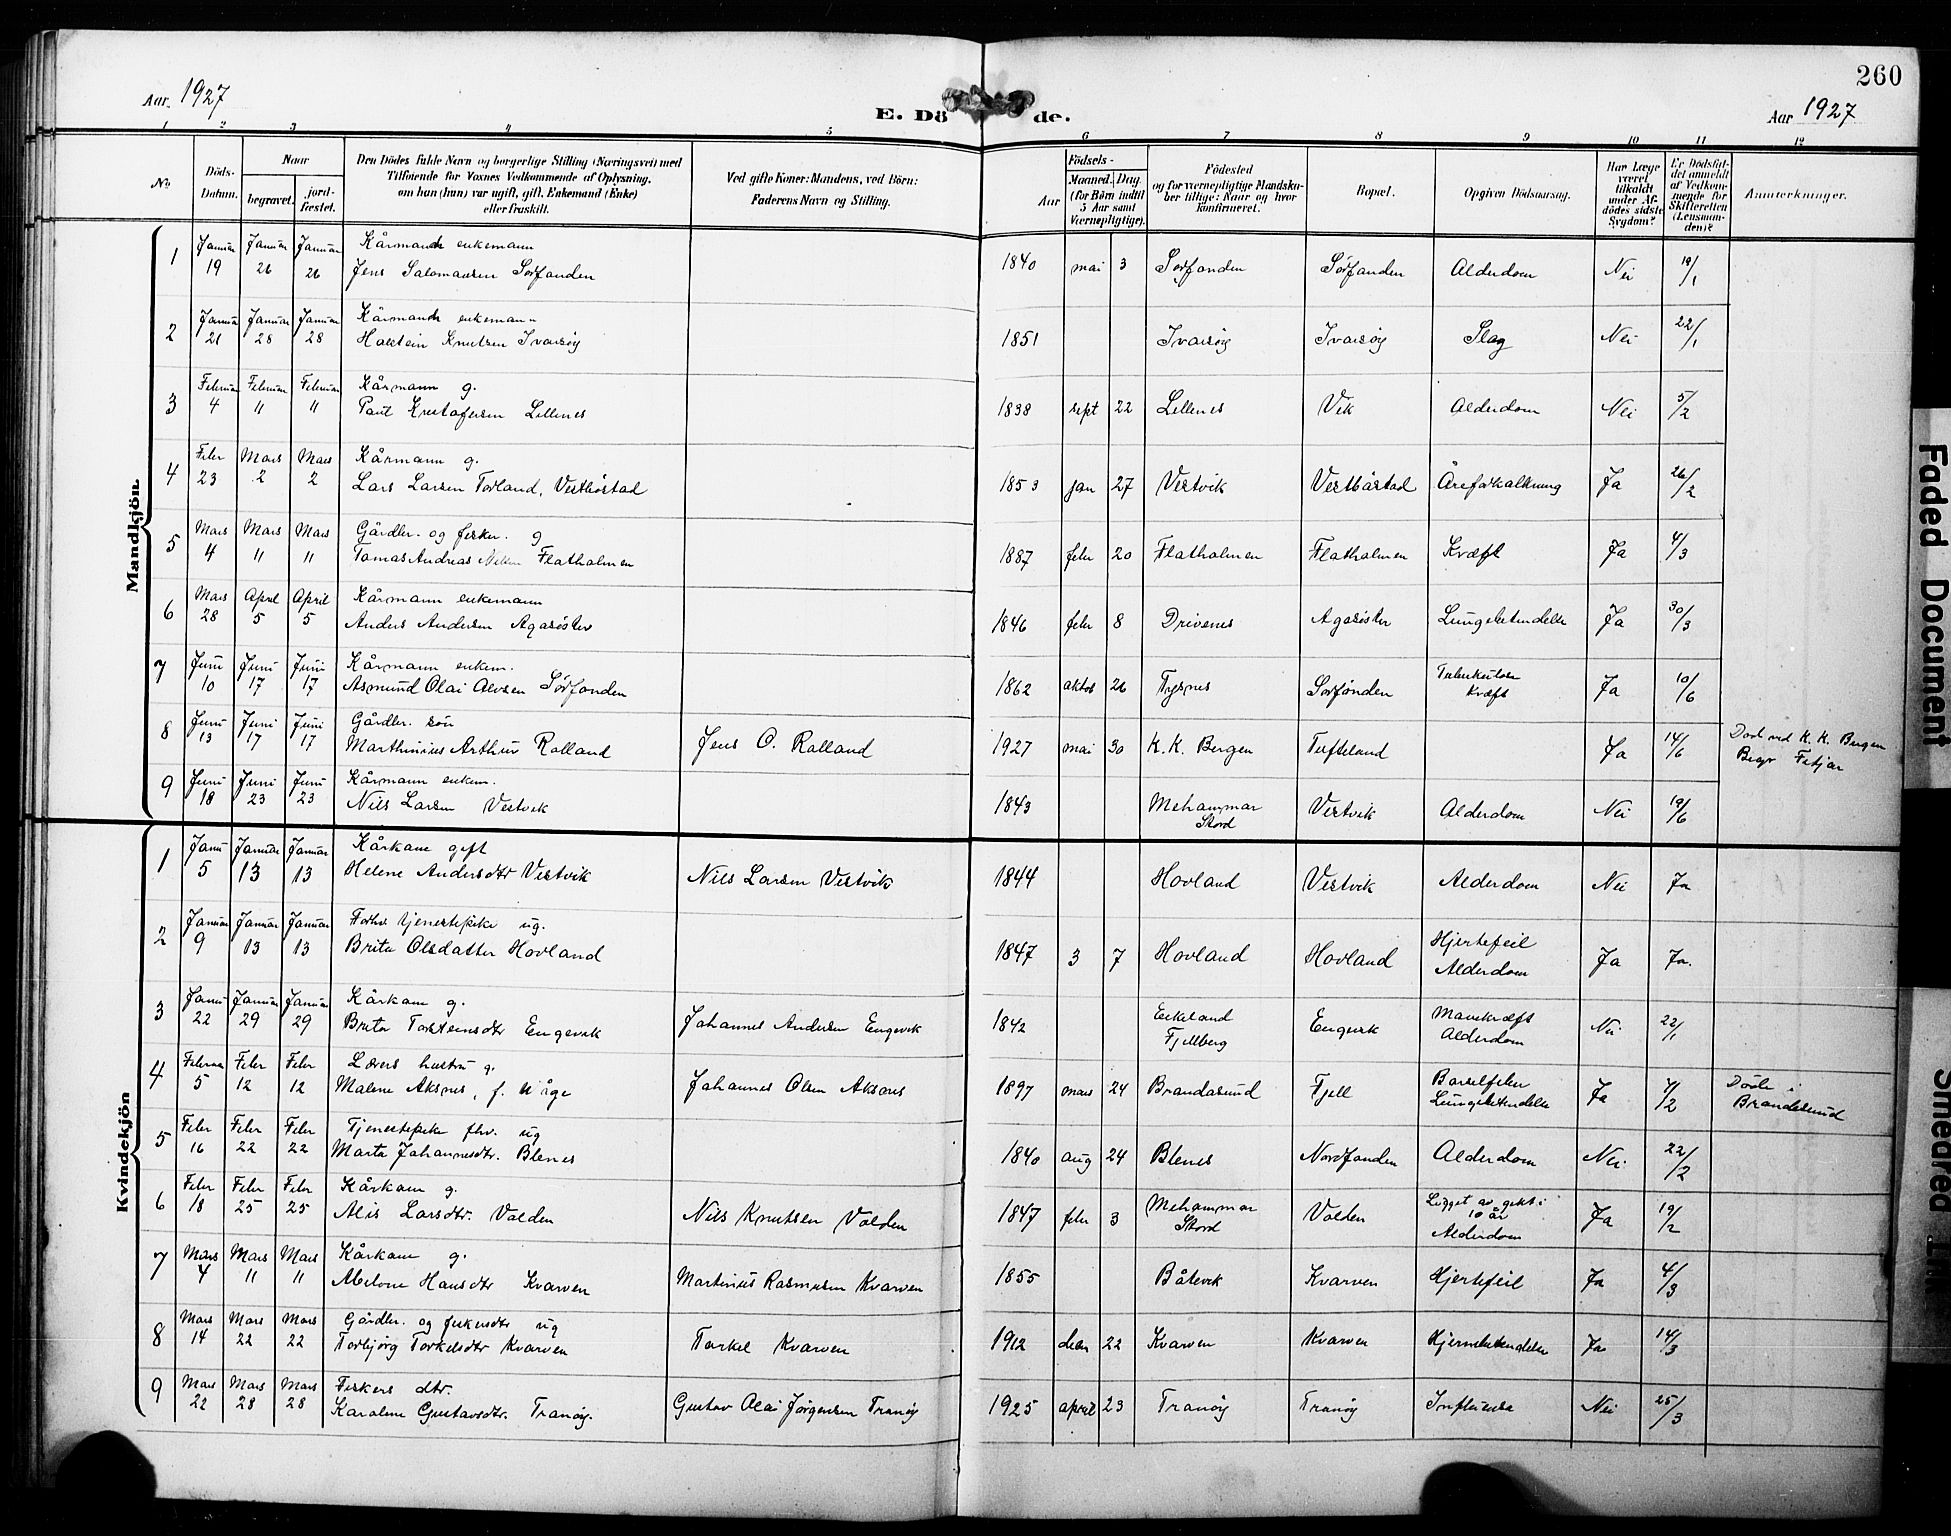 260
Aar 1927
E. Dö de.
Aar 1927
1 2 3 4 5 6 7 8 9 10 11 12
No
Döds-Datum.
Naar
begravet.
jord-fæstet.
Den Dödes fulde Navn og borgerlige Stilling (Næringsvei) med
Tilföiende for Voxnes Vedkommende af Oplysning,
om han (hun) var ugift, gift, Enkemand (Enke)
eller fraskilt.
Ved gifte Koner: Mandens, ved Börn:
Faderens Navn og Stilling.
Födsels-
Aar
Maaned. Dag
(for Börn indtil
5 Aar samt
Værnepligtige).
Födested
og for værnepligtige Mandskaber tillige: Naar og hvor
konfirmeret.
Bopæl.
Opgiven Dödsaarsag.
Har Læge
været
tilkaldt
under Afdödes sidste
Sygdom?
Er Dödsfaldet anmeldt
af Vedkommende for
Skifteretten
(Lensmanden)?
Anmerkninger.
Mandkjön.
1 Januar 19 Januar 26 Januar 26 Kårmand enkemann
Jens Salamonsen Sørfonden 1840 mai 3 Sørfonden Sørfonden Alderdom Nei 19/1
2 Januar 21 Januar 28 Januar 28 Kårmand enkemann
Halstein Knutsen Ivarsøy 1851 Ivarsøy Ivarsøy Slag Nei 22/1
3 Februar 4 Februar 11 Februar 11 Kårmann g.
Paul Kristofersen Lillenes 1838 sept 22 Lillenes Vik Alderdom Nei 5/2
4 Febr 23 Mars 2 Mars 2 Kårmann g.
Lars Larsen Torland, Vestbøstad 1853 jan 27 Vestvik Vestbøstad Åreforkalkning Ja 26/2
5 Mars 4 Mars 11 Mars 11 Gårdbr. og fisker. g
Tomas Andreas Nilsen Flatholmen 1887 febr 20 Flatholmen Flatholmen Kræft Ja 4/3
6 Mars 28 April 5 April 5 Kårmann enkemann
Anders Andersen Agasøster 1846 febr 8 Drivenes Agasøster Lungebetendelse Ja 30/3
7 Juni 10 Juni 17 Juni 17 Kårmann enkem.
Asmund Olai Alvsen Sørfonden 1862 oktob 26 Tysnes Sørfonden Tuberkulose
Kræft Ja 10/6
8 Juni 13 Juni 17 Juni 17 Gårdbr. søn
Marthinius Arthur Rolland Jens O. Rolland 1927 mai 30 K. K. Bergen Tufteland Ja 14/6 Død ved K. K. Bergen
Begr Fitjar
9 Juni 18 Juni 23 Juni 23 Kårmann enkem.
Nils Larsen Vestvik 1843 Mehammar
Stord Vestvik Alderdom Nei 19/6
Kvindekjön
1 Janu 5 Januar 13 Januar 13 Kårkone gift
Helene Andersdtr Vestvik Nils Larsen Vestvik 1844 Hovland Vestvik Alderdom Nei Ja
2 Januar 9 Januar 13 Januar 13 Forhv tjenestepike ug.
Brita Olsdatter Hovland 1847 3 7 Hovland Hovland Hjertefeil
Alderdom Ja Ja.
3 Janu 22 Januar 29 Januar 29 Kårkone g.
Brita Torsteinsdtr Engevik Johannes Andersen Engevik 1842 Eikeland
Fjellberg Engevik Mavekræft
Alderdom Nei 22/1
4 Februar 5 Febr 12 Febr 12 Lærers hustru g.
Malene Aksnes, f. Våge Johannes Olsen Aksnes 1897 mars 24 Brandasund Fjell Barselfeber
Lungebetendelse Ja 7/2 Døde i
Brandasund
5 Febr 16 Febr 22 Febr 22 Tjenestepike fhv. ug
Marta Johannesdtr. Blenes 1840 aug 24 Blenes Nordfonden Alderdom Nei 22/2
6 Febr 18 Febr 25 Febr 25 Kårkone g.
Alis Larsdtr. Valden Nils Knutsen Valden 1847 febr 3 Mehammar
Stord Valden Ligget av gikt i
10 år
Alderdom Ja 19/2
7 Mars 4 Mars 11 Mars 11 Kårkone g.
Abelone Hansdtr Kvarven Martinius Rasmussen Kvarven 1855 Båtevik Kvarven Hjertefeil Ja 4/3
8 Mars 14 Mars 22 Mars 22 Gårdbr. og fiskersdtr ug
Torbjørg Torkelsdtr Kvarven Torkel Kvarven 1912 dem 22 Kvarven Kvarven Hjernebetendelse Ja 14/3
9 Mars 22 Mars 28 Mars 28 Fiskers dtr.
Karoline Gustavsdtr. Tranøy. Gustav Olai Jørgensen Tranøy 1925 april 23 Tranøy Tranøy Influensa Nei 25/3
Faded Document
Smedred Ink